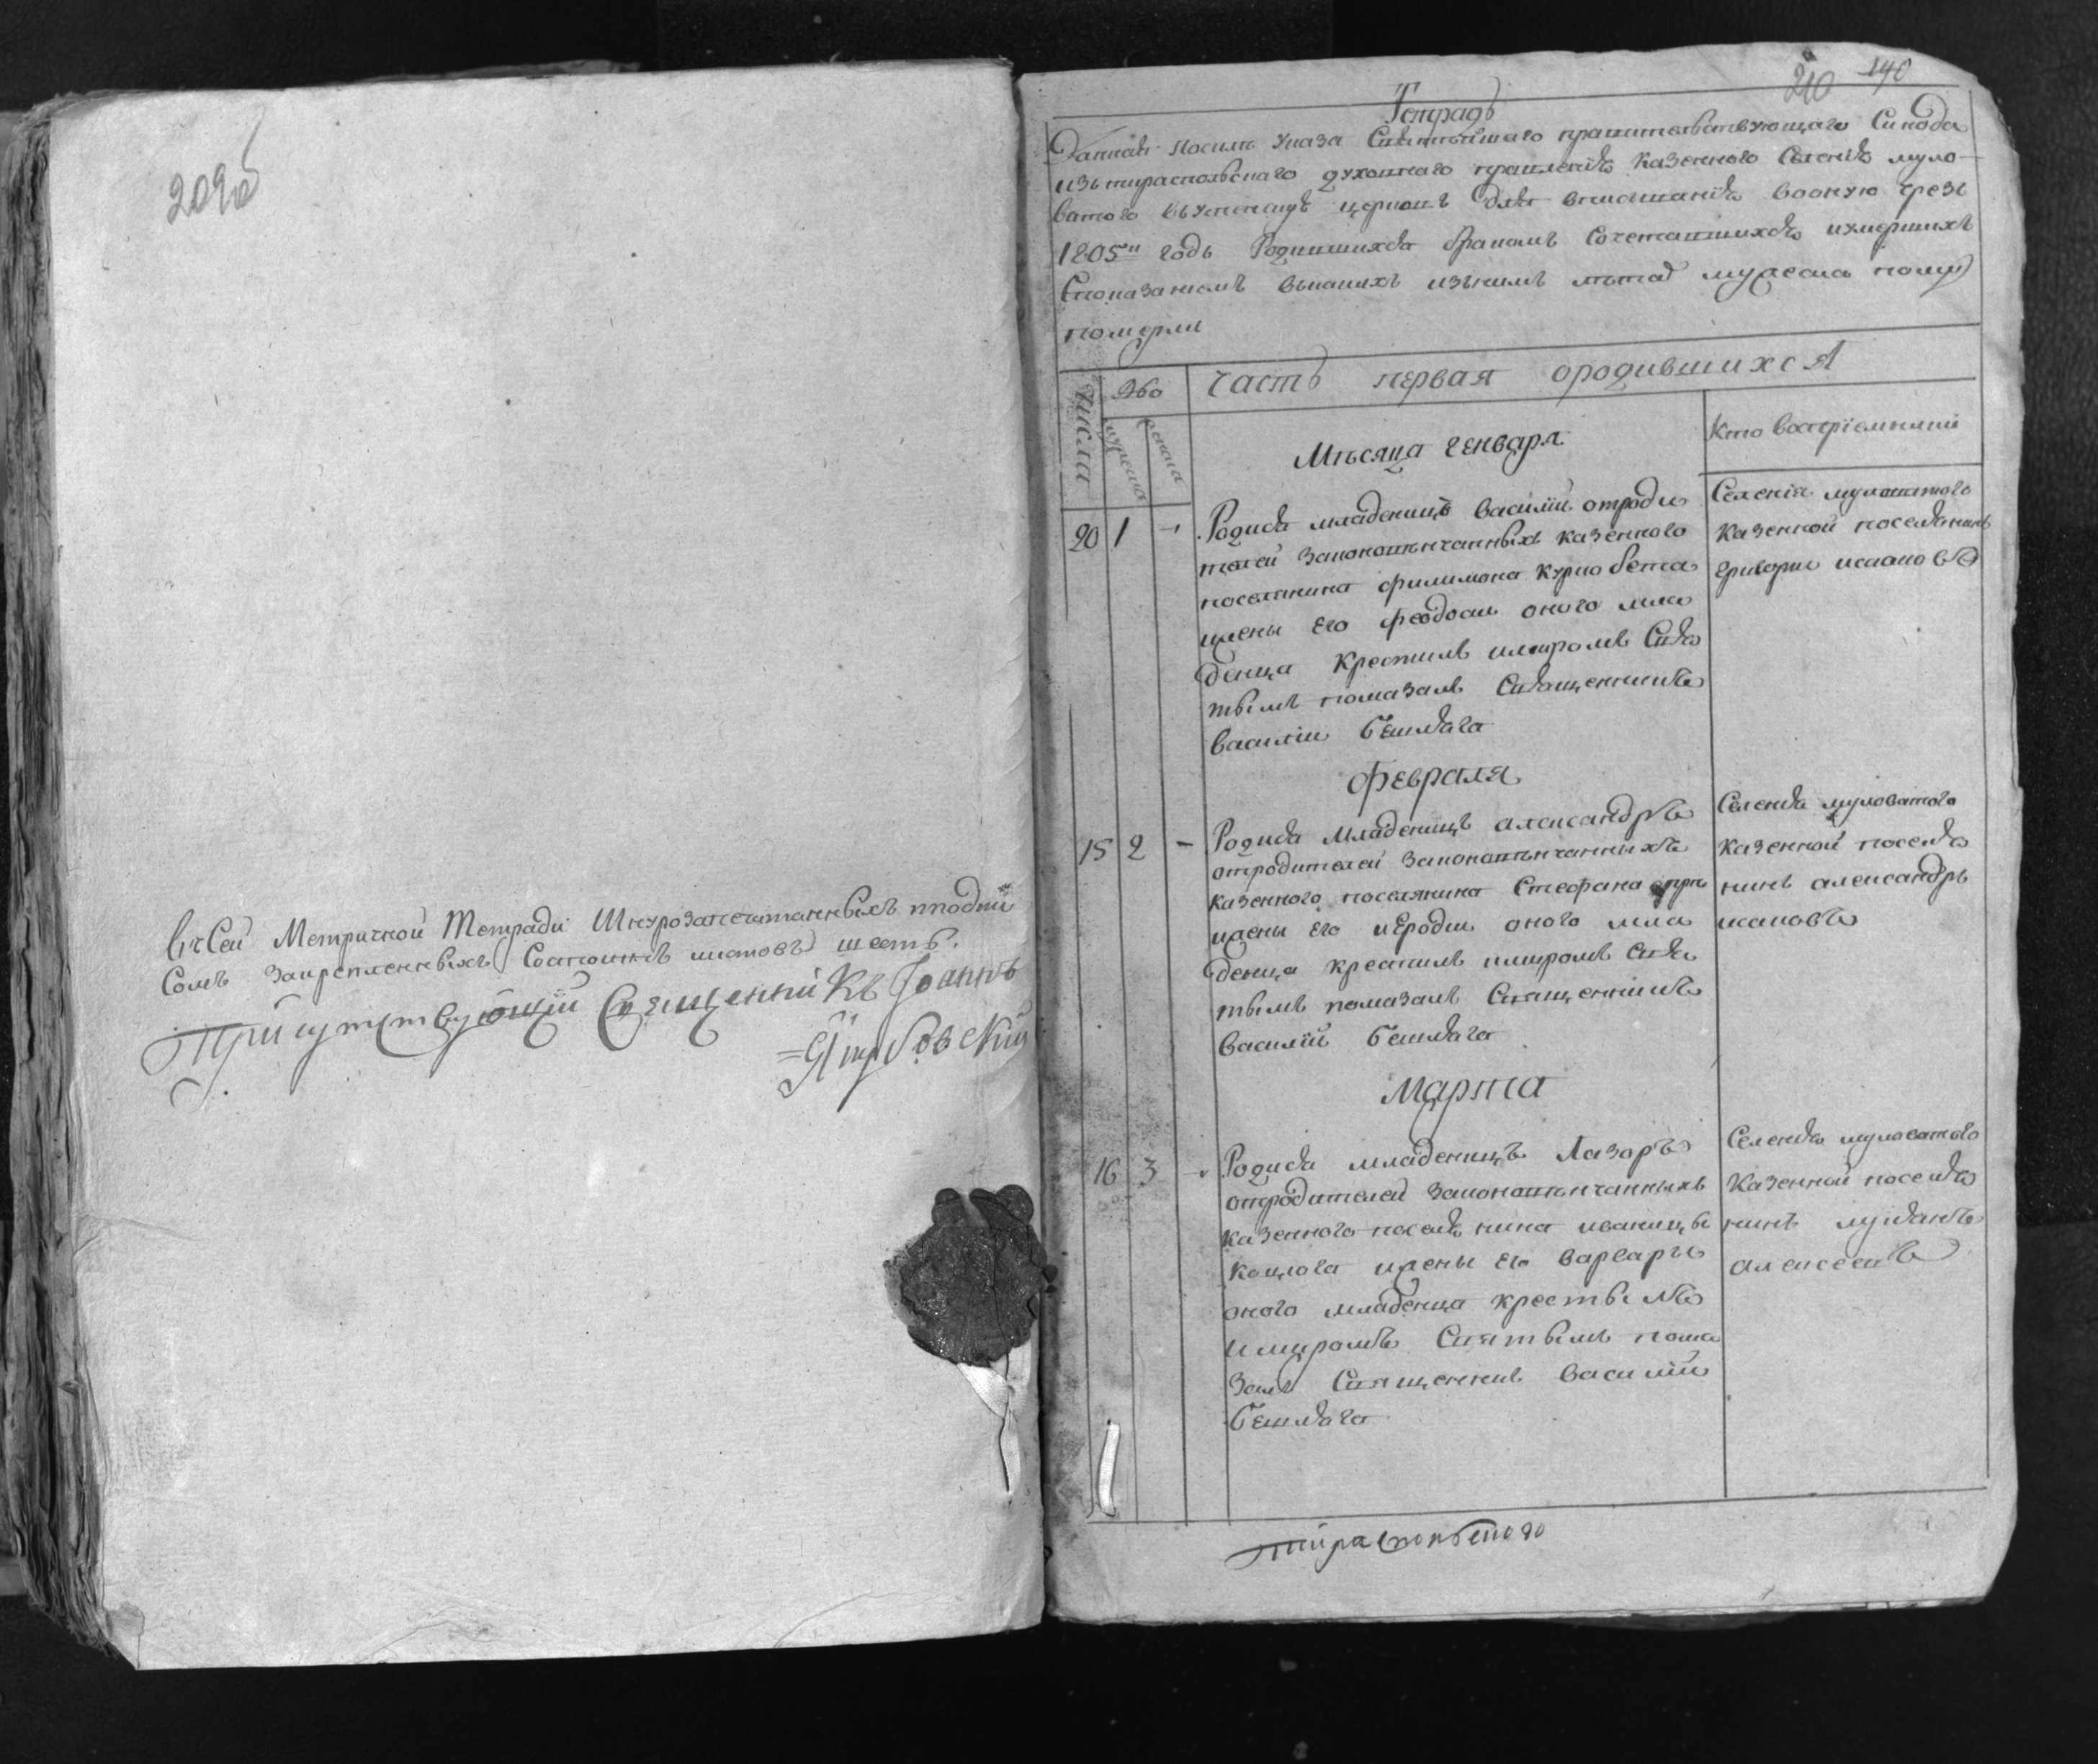 209об
Въ Сей Метричной Тетради Шнурозапечатанныхъ иподпи
Сомъ Закрепленныхъ Состоитъ листовъ шесть.
Присутствующій Священникъ Іоаннъ
210 140
Тетрадь
Данная посилѣ Указа Святѣйшаго правительствующаго Синода
изътираспольскаго духовнаго правленія казенного Селенія муло-
ватого церковь Для вписыванія воную чрезъ
1805й годъ Родившихся бракомъ Сочетавшихся иумершихъ
Спомазаніемъ
померли
Числа
Часть первая ородившихся
Мѣсяца генваря
Кто воспріемники
20 1 - Родися младенецъ василій отроди
телей Законовѣнчанныхъ казенного
поселянина филимона
жены Его феодосіи оного мла
денца крестилъ имиромъ Свя
тымъ помазалъ Священникъ
василіи Бешляга
Селенія муловатого
казенной поселянинъ
григорій
Февраля
15 2 - Родися Младенецъ александръ
отродителей Законовѣнчанныхъ
казенного поселянина Стефана
жены Его иеродіи оного мла
денца крестилъ имиромъ Свя
тымъ помазалъ Священникъ
василій Бешляга
Селенія муловатого
казенной поселя
нинъ александръ
Марта
16 3 - Родися младенецъ Лазоръ
отродителей Законовѣнчанныхъ
казенного поселянина
жены его варвары
оного младенца крестилъ
имиромъ Святымъ пома
залъ Священникъ василій
Бешляга
Селенія муловатого
казенной поселя
нинъ лукьянъ
алексеевъ
тираспольского